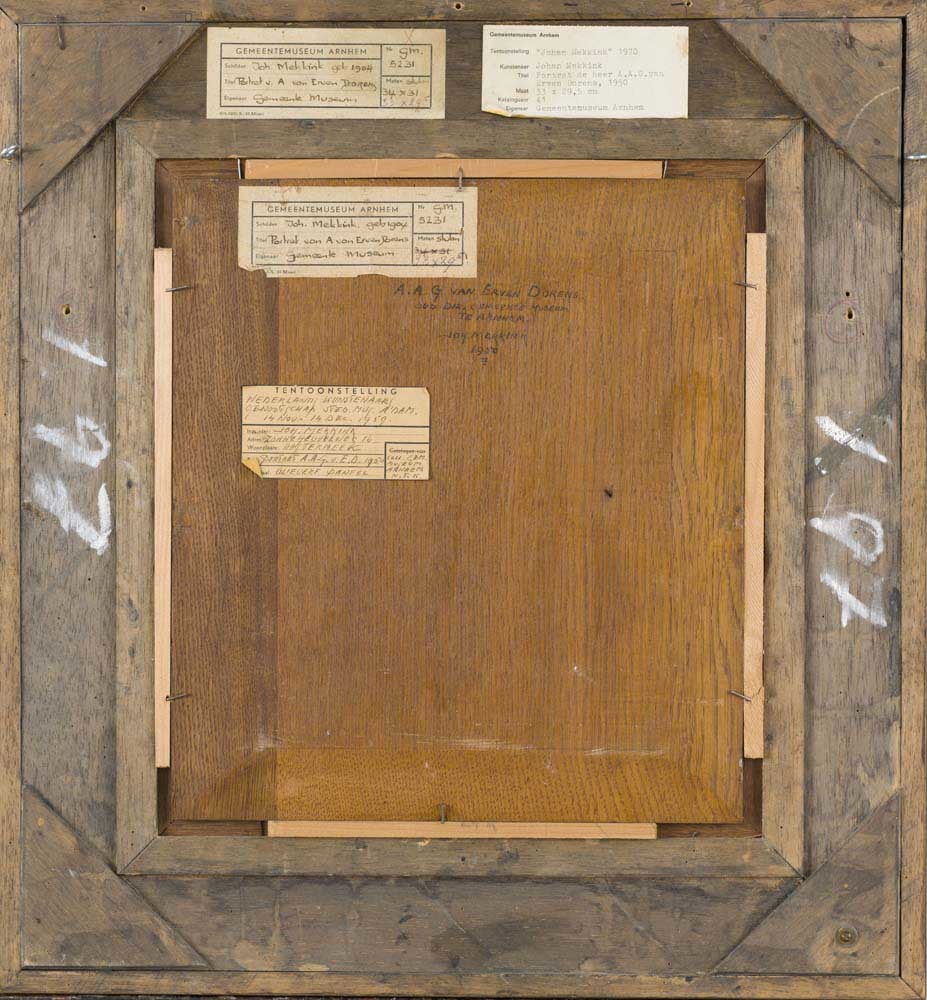 GEMEENTEMUSEUM ARNHEM
Nr. Gm.
5231
Schilder Joh. Mekkink geb 1904
Titel Portret v. A van Erven Dorens
Maten
34 x 31
Eigenaar Gemeente Museum
Gemeentemuseum Arnhem
Tentoonstelling "Johan Mekkink" 1970
Kunstenaar Johan Mekkink
Titel Portret de heer A.A.G.van
Erven Dorens, 1950
Maat 33 x 29,5 cm
Katalogusnr 41
Eigenaar Gemeentemuseum Arnhem
GEMEENTEMUSEUM ARNHEM
Nr. Gm.
5231
Schilder Joh. Mekkink. geb 1904
Titel Portret van A van Erven Dorens
Maten
34 x 31
Eigenaar Gemeente Museum
A.A.G VAN ERVEN DORENS.
OUD DIR. GEMEENTE MUSEUM
TE ARNHEM.
JOH. MEKKINK
1950
TENTOONSTELLING
NEDERLANDS KUNSTENAARS
GENOOTSCHAP STED. MUS. A'DAM.
14 NOV. - 14 DEC. 1950.
JOH. MEKKINK
Woonplaats: OOSTERBEEK
PORTRET A.A.G. v. E.D. 1950
OLIEVERF PANEEL
197
197